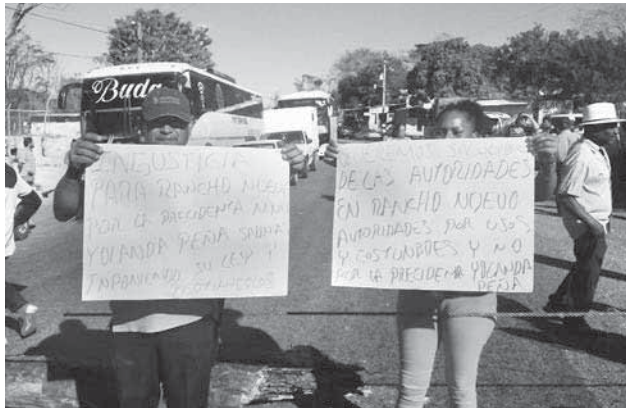 Buda
INJUSTICIA
PARA RANCHO NUEVO
POR LA PRECIDENTA
YOLANDA PEÑA
INPONIENDO SU LEY Y
DE LAS AUTORIDADES
EN RANCHO NUEVO
AUTORIDADES POR USOS
Y COSTUNBRES Y NO
POR LA PRECIDENTA YOLANDA
PEÑA